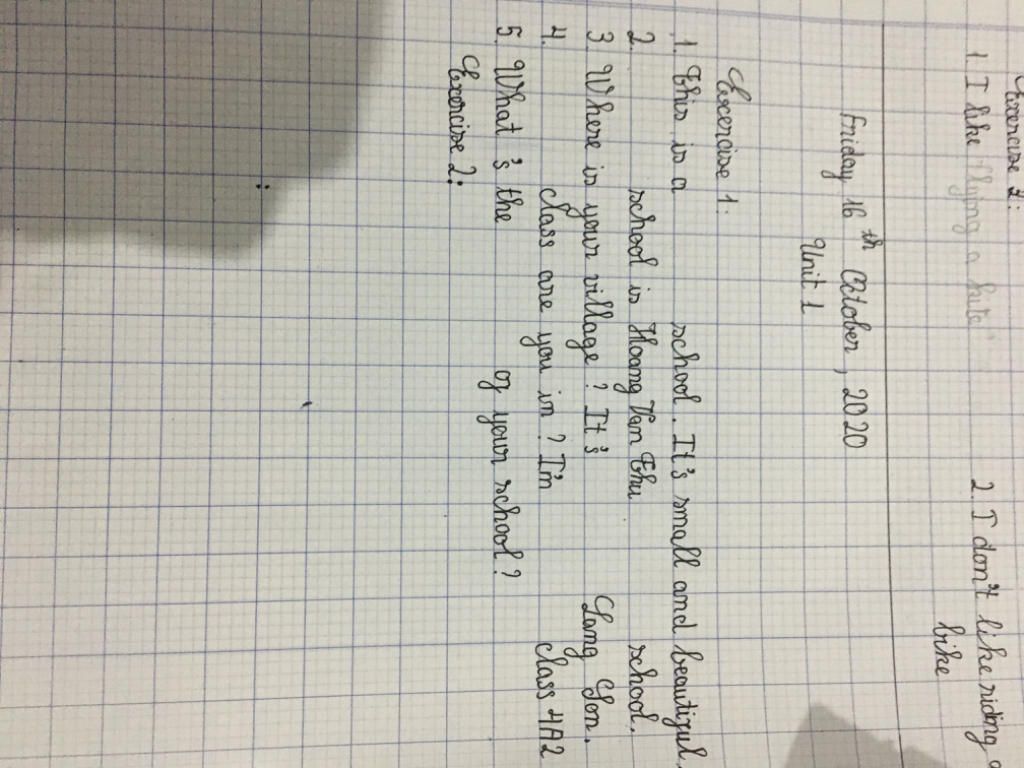 Exercise 2:
1. I like flying a kite 2. I don't like riding a
bike
Friday 16th October, 2020
Unit 1
Exercise 1:
1. This is a school. It's small and beautiful.
2. school is Hoang Van Thu school.
3. Where is your village? It's Lang Son.
4. class are you in? I'm class 4A2
5. What's the of your school?
Exercise 2: